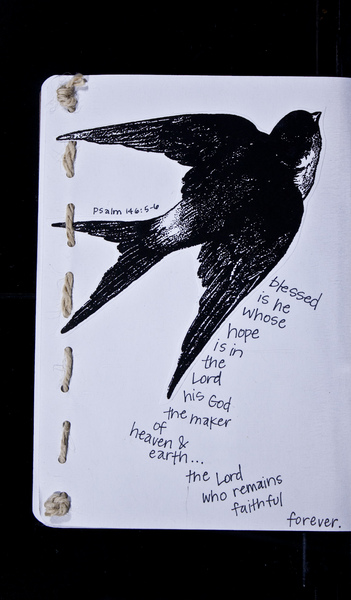 Psalm 146:5-6
blessed
is he
whose
hope
is in
the
Lord
his God
the maker
of
heaven &
earth...
the Lord
who remains
faithful
forever.